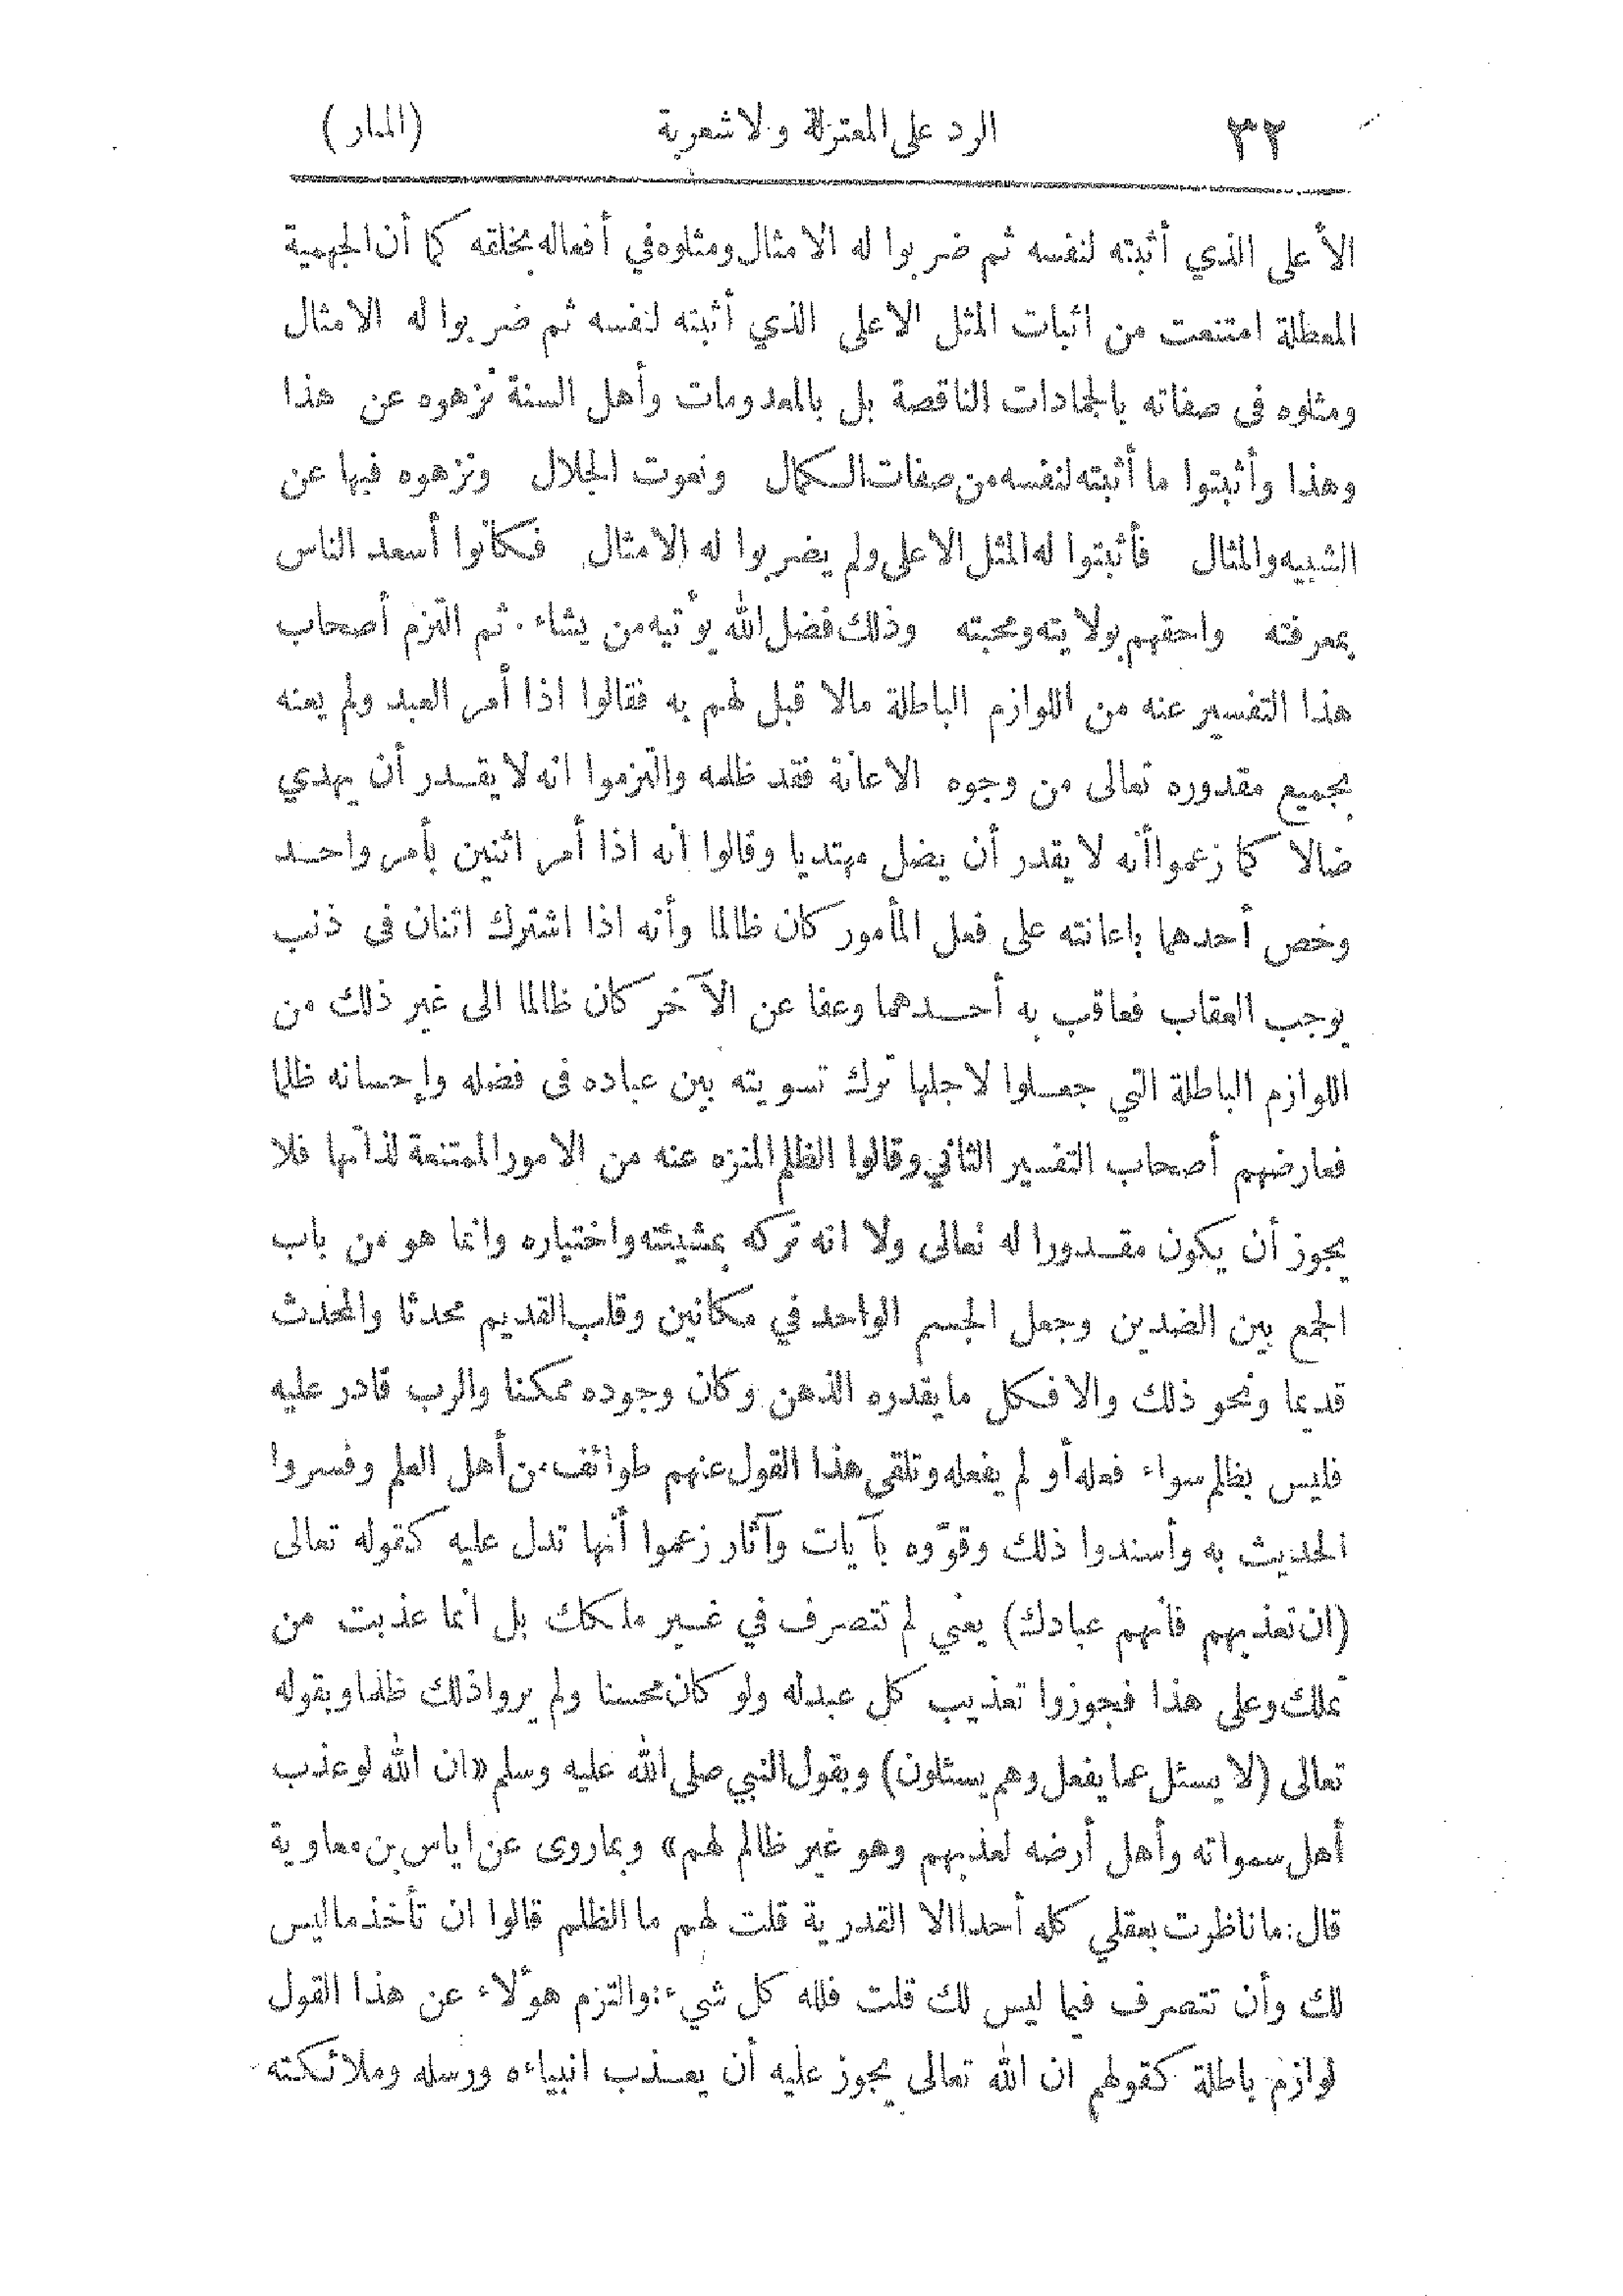 ٣٢ الرد على المعتزلة والاشعرية (المنار)
الأعلى الذي أثبته لنفسه ثم ضربوا له الامثال ومثلوه في أفعاله بخلقه كما أن الجهمية
المعطلة امتنعت من اثبات المثل الاعلى الذي أثبته لنفسه ثم ضربوا له الامثال
ومثلوه فى صفاته بالجمادات الناقصة بل بالمعدومات وأهل السنة نزهوه عن هذا
وهذا وأثبتوا ما أثبته لنفسه من صفات الكمال ونعوت الجلال ونزهوه فيها عن
الشبيه والمثال فأثبتوا له المثل الاعلى ولم يضربوا له الامثال فكانوا أسعد الناس
بمعرفته واحقهم بولايته ومحبته وذلك فضل الله يؤتيه من يشاء. ثم التزم أصحاب
هذا التفسير عنه من اللوازم الباطلة مالا قبل لهم به فقالوا اذا أمر العبد ولم يعنه
بجميع مقدوره تعالى من وجوه الاعانة فقد ظلمه والتزموا انه لا يقدر أن يهدي
ضالا كما زعموا أنه لا يقدر أن يضل مهتديا وقالوا انه اذا أمر اثنين بأمر واحد
وخص أحدهما باعانته على فعل المأمور كان ظالما وأنه اذا اشترك اثنان فى ذنب
يوجب العقاب فعاقب به أحدهما وعفا عن الآخر كان ظالما الى غير ذلك من
اللوازم الباطلة التي جعلوا لاجلها ترك تسويته بين عباده فى فضله وإحسانه ظلما
فعارضهم أصحاب التفسير الثاني وقالوا الظلم المنزه عنه من الامور الممتنعة لذاتها فلا
يجوز أن يكون مقدورا له تعالى ولا انه تركه بمشيئته واختياره وانما هو من باب
الجمع بين الضدين وجعل الجسم الواحد في مكانين وقلب القديم محدثا والمحدث
قديما ونحو ذلك والا فكل ما يقدره الذهن وكان وجوده ممكنا والرب قادر عليه
فليس بظلم سواء فعله أو لم يفعله وتلقى هذا القول عنهم طوائف من أهل العلم وفسروا
الحديث به وأسندوا ذلك وقوّوه بآيات وآثار زعموا أنها تدل عليه كقوله تعالى
(ان تعذبهم فانهم عبادك) يعني لم تتصرف في غير ملكك بل انما عذبت من
تملك وعلى هذا فجوزوا تعذيب كل عبدله ولو كان محسنا ولم يروا ذلك ظلما وبقوله
تعالى (لا يسئل عما يفعل وهم يسئلون) وبقول النبي صلى الله عليه وسلم «ان الله لو عذب
أهل سمواته وأهل أرضه لعذبهم وهو غير ظالم لهم» وبما روى عن اياس بن معاوية
قال: ما ناظرت بعقلي كله أحدا الا القدرية قلت لهم ما الظلم قالوا ان تأخذ ما ليس
لك وأن تتصرف فيما ليس لك قلت فلله كل شيء: والتزم هؤلاء عن هذا القول
لوازم باطلة كقولهم ان الله تعالى يجوز عليه أن يعذب انبياءه ورسله وملائكته